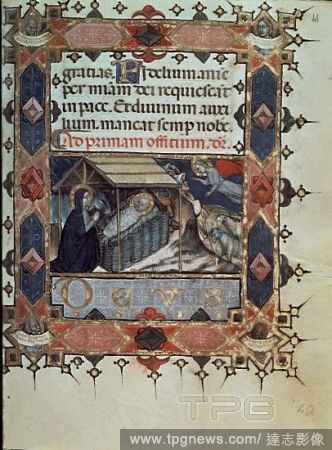 gratias. Fidelium anie
per miam dei requiescat
in pace. Et divinum auxi
lium. maneat semp nobc.
Ad primam officium. dz.
DEUS
TPG
www.tpgnews.com/ 達志影像